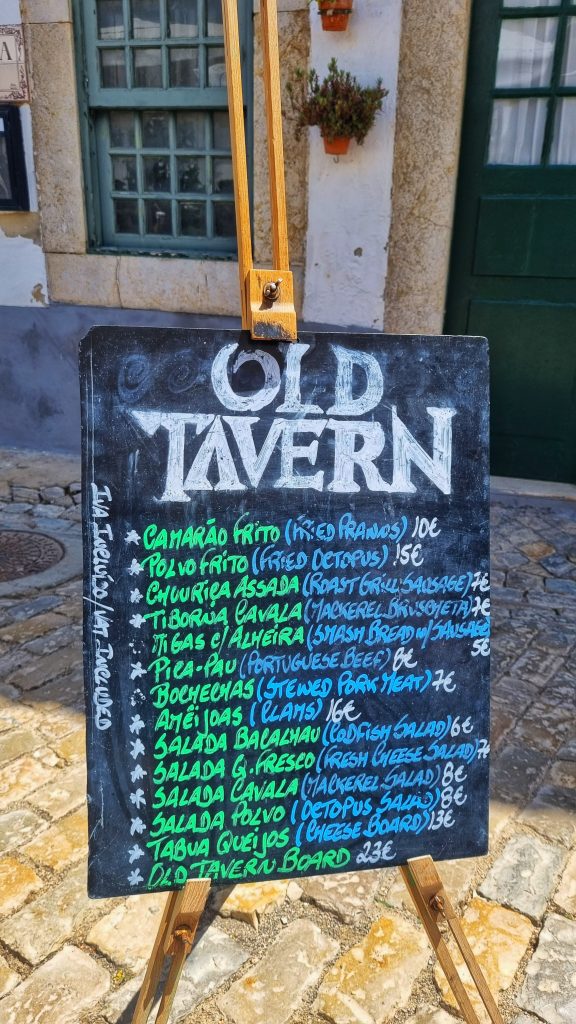 A
OLD
TAVERN
IVA INCLUÍDO/VAT INCLUDED
CAMARÃO FRITO (FRIED PRAWNS) 10€
POLVO FRITO (FRIED OCTOPUS) 15€
CHOURIÇA ASSADA (ROAST GRILL SAUSAGE) 7€
TIBORNA CAVALA (MACKEREL BRUSCHETA) 7€
MIGAS C/ALHEIRA (SMASH BREAD W/ SAUSAGE
5€
PICA-PAU (PORTUGUESE BEEF) 8€
BOCHECHAS (STEWED PORK MEAT) 7€
AMÊIJOAS (CLAMS) 16€
SALADA BACALHAU (CODFISH SALAD) 6€
SALADA Q.FRESCO (FRESH CHEESE SALAD) 7€
SALADA CAVALA (MACKEREL SALAD) 8€
SALADA POLVO (OCTOPUS SALAD) 8€
TABUA QUEIJOS (CHEESE BOARD) 13€
OLD TAVERN BOARD 23€